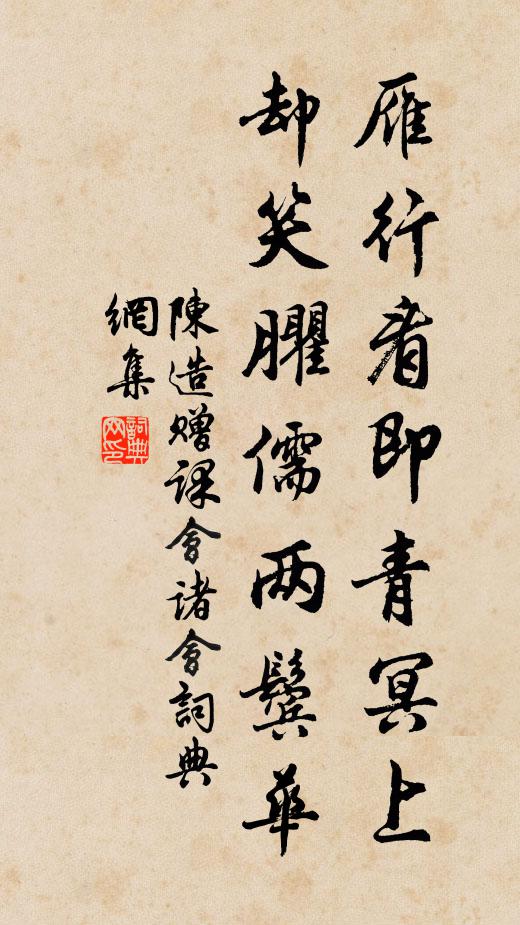 雁行看即青冥上
却笑臞儒两鬓華
陳造赠課會诸會詞典
網集
詞典網印